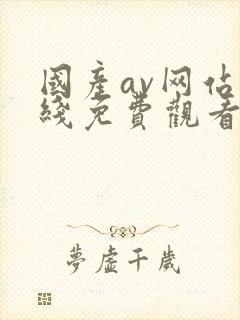 國產av网佔
綫免費觀看
夢虛千歲